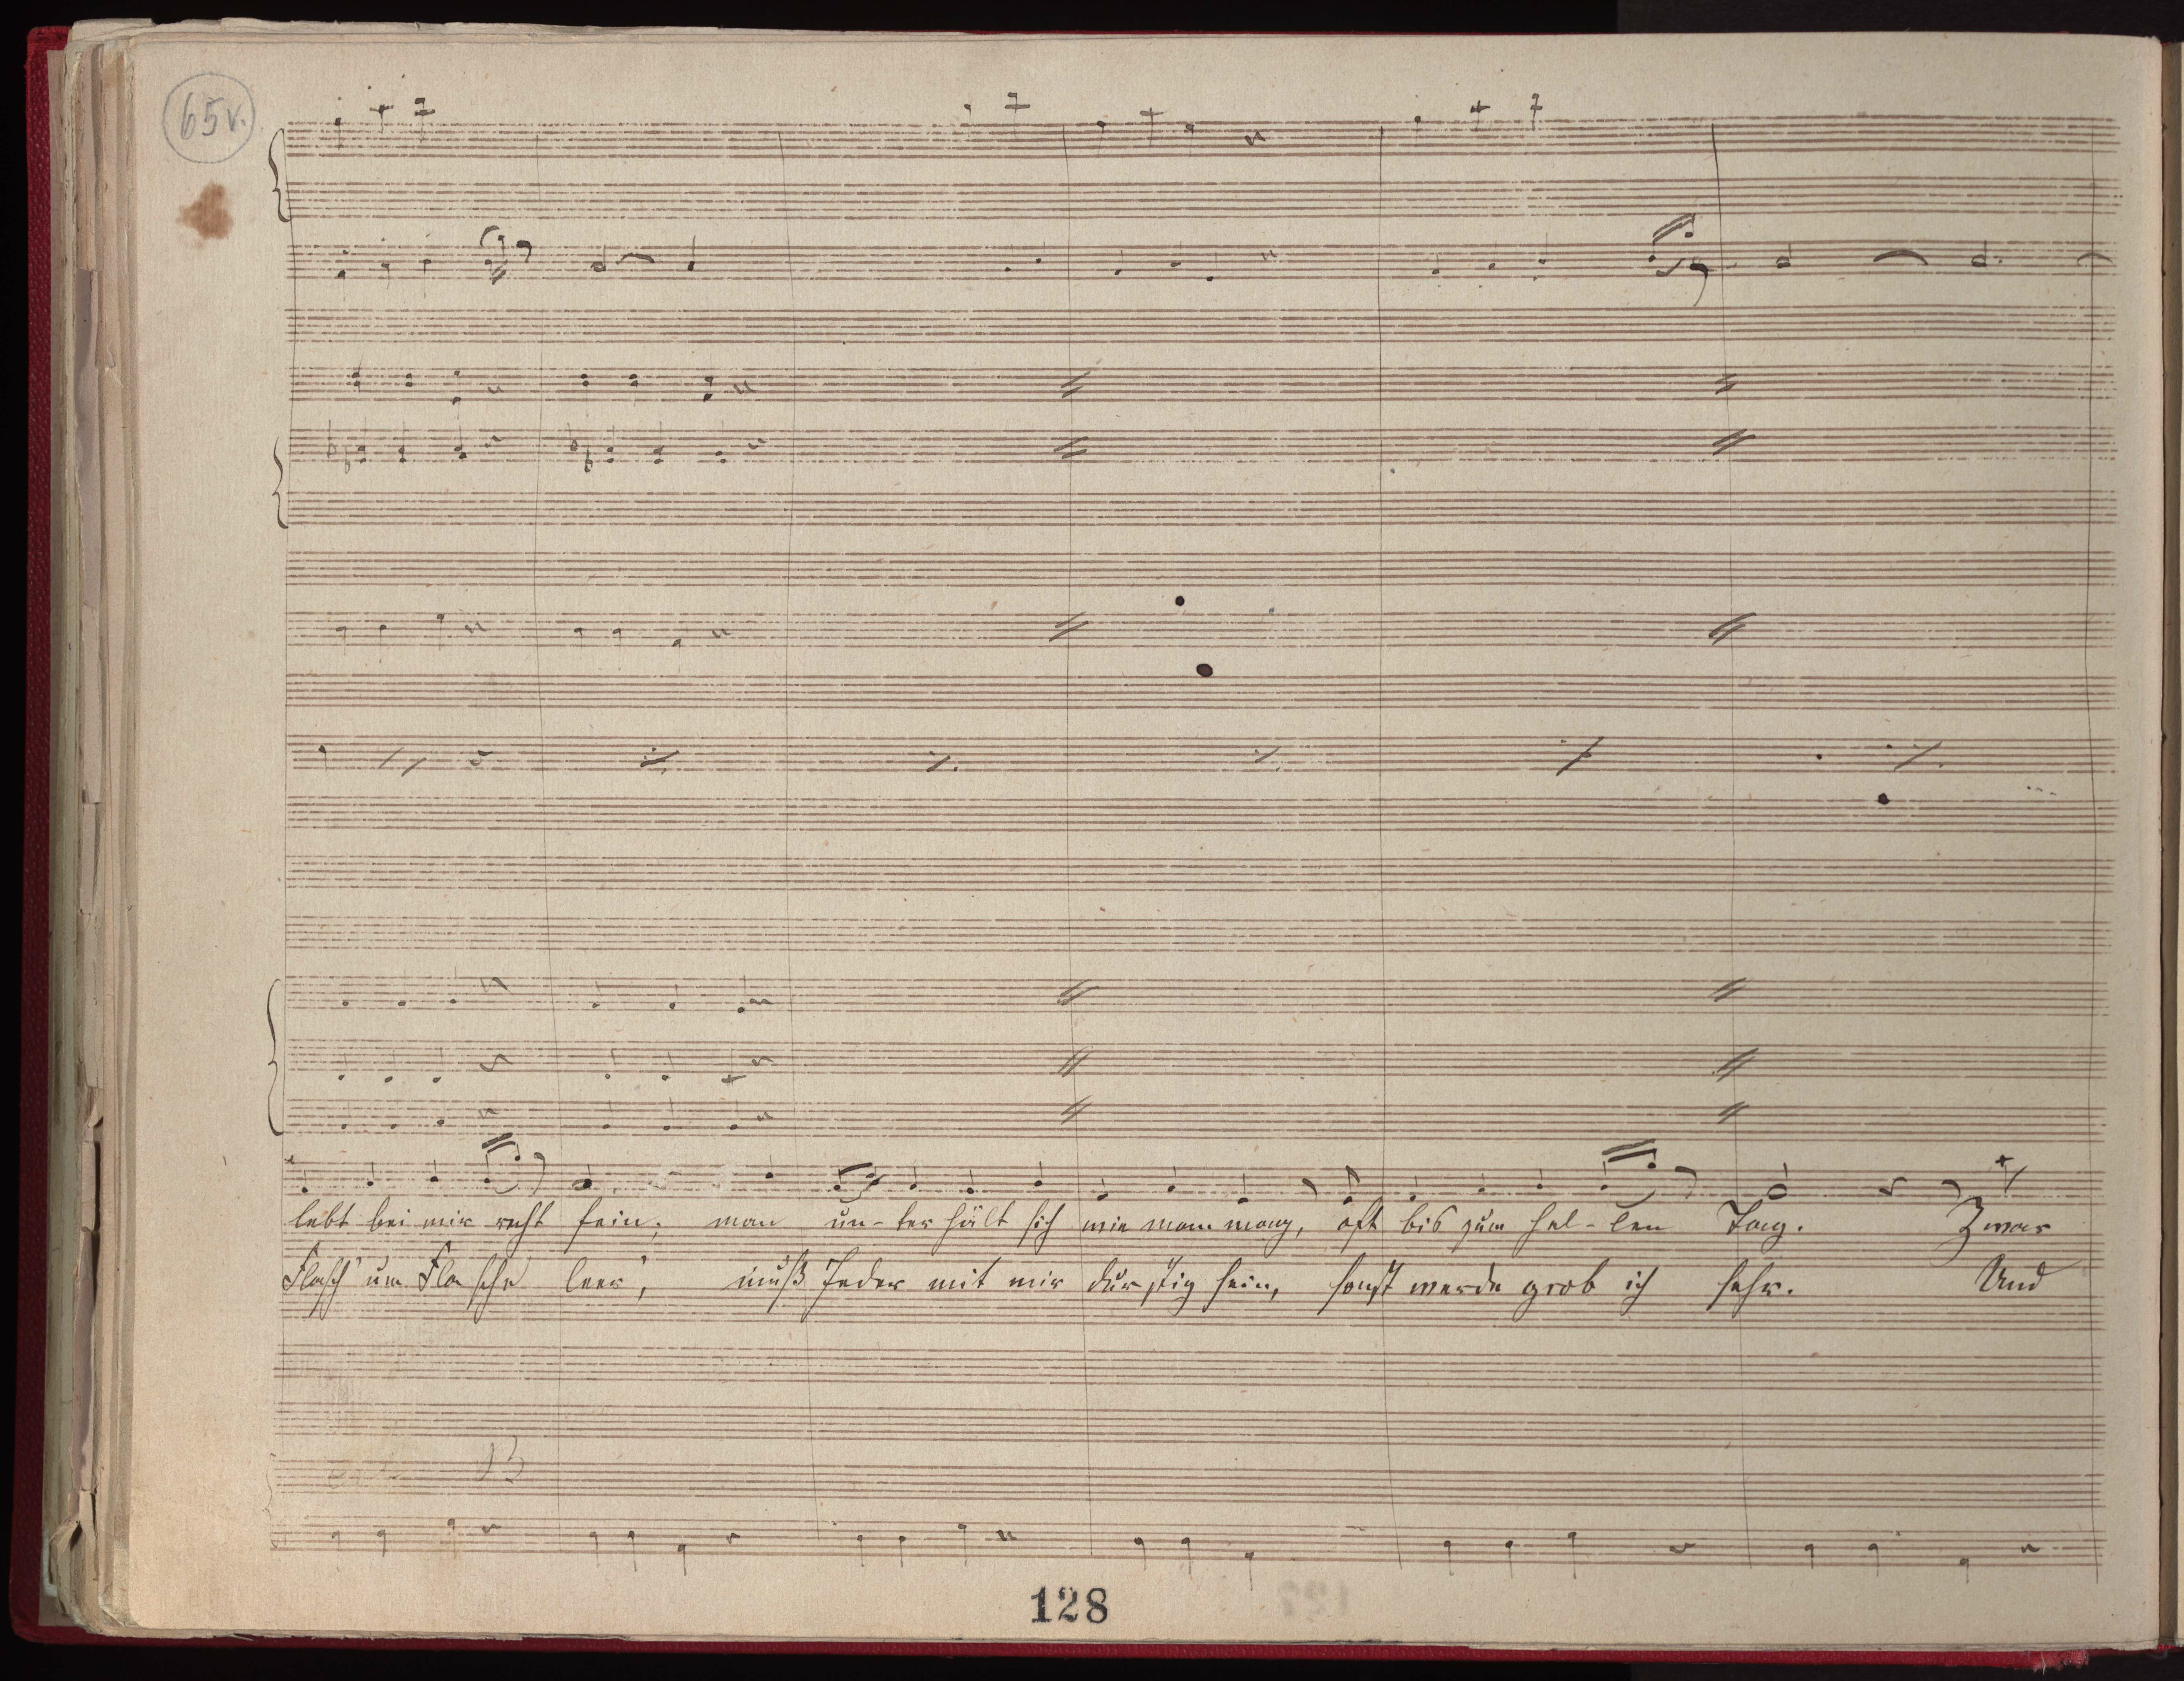 65v.
lebt bei mir recht fein; man un-ter hält sich wie man mag, oft bis zum hel-len Tag. Zwar
Flasch' um Fla sche leer', muß Jeder mit mir durstig sein, sonst werde grob ich sehr. Und
128